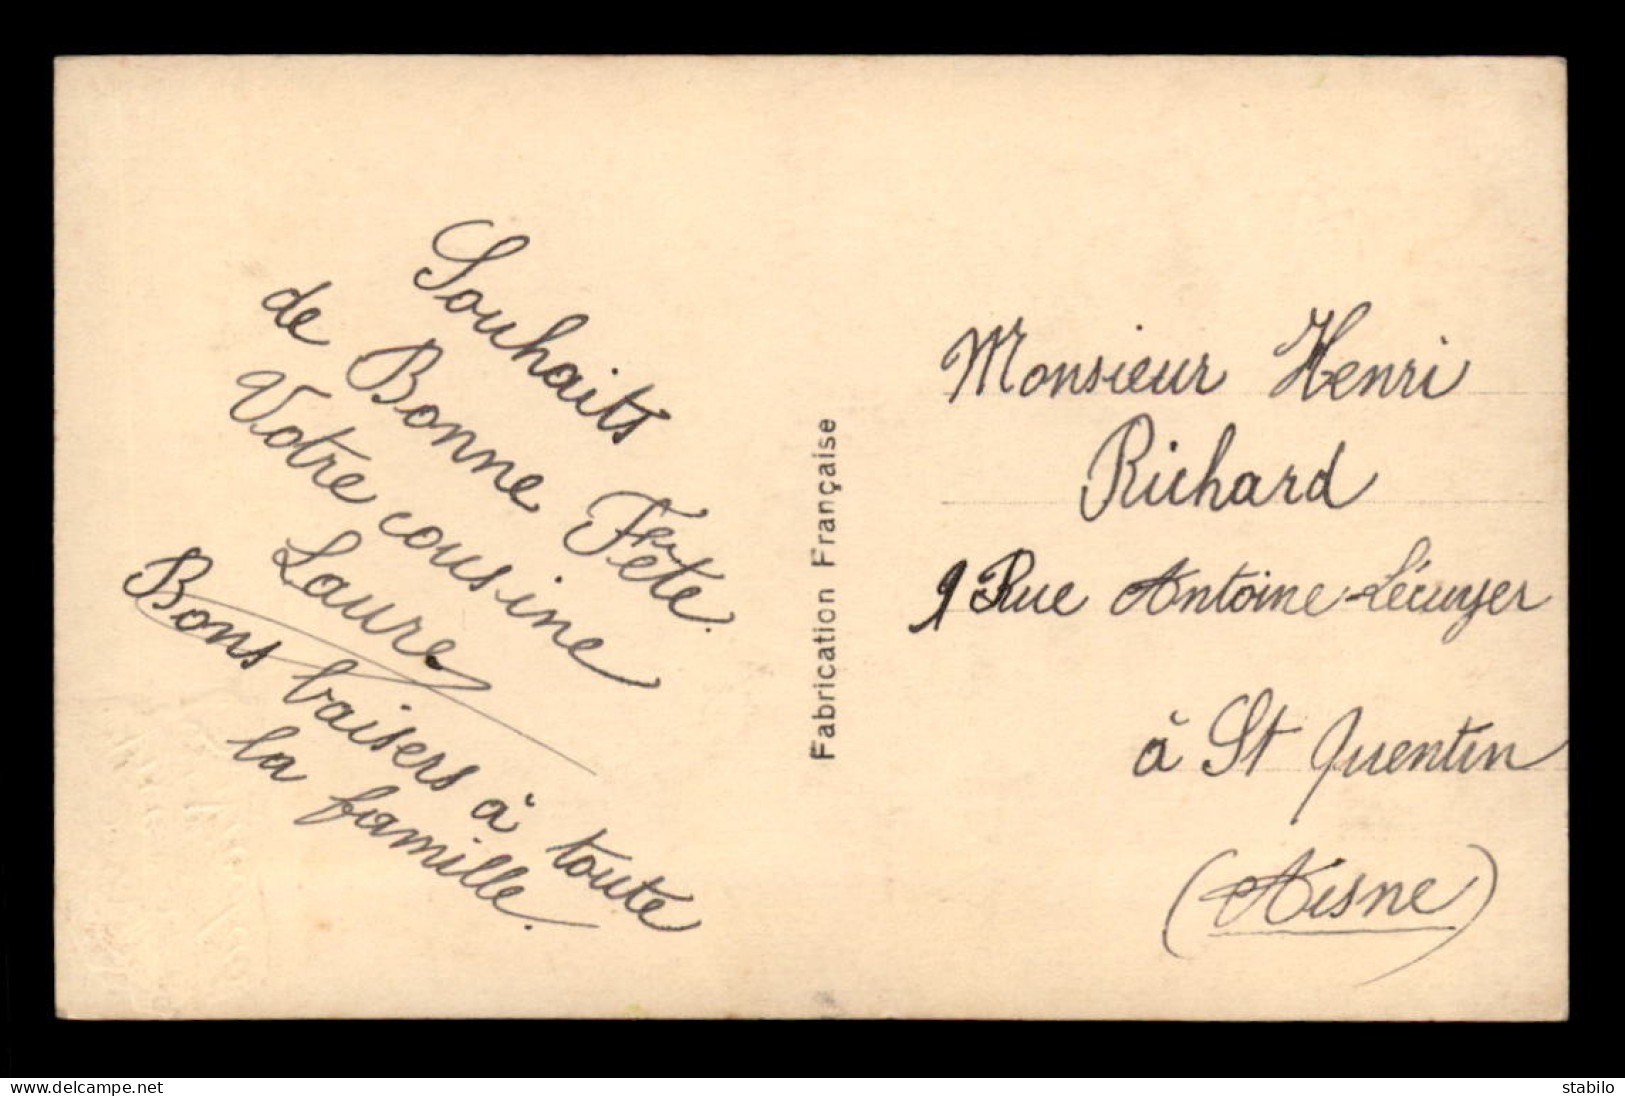 Souhaits
de Bonne Fête.
Votre cousine
Laure
Bons baisers à toute
la famille.
Fabrication Française
Monsieur Henri
Richard
9 Rue Antoine-Lécuyer
à St Quentin
(Aisne)
www.delcampe.net
stabilo